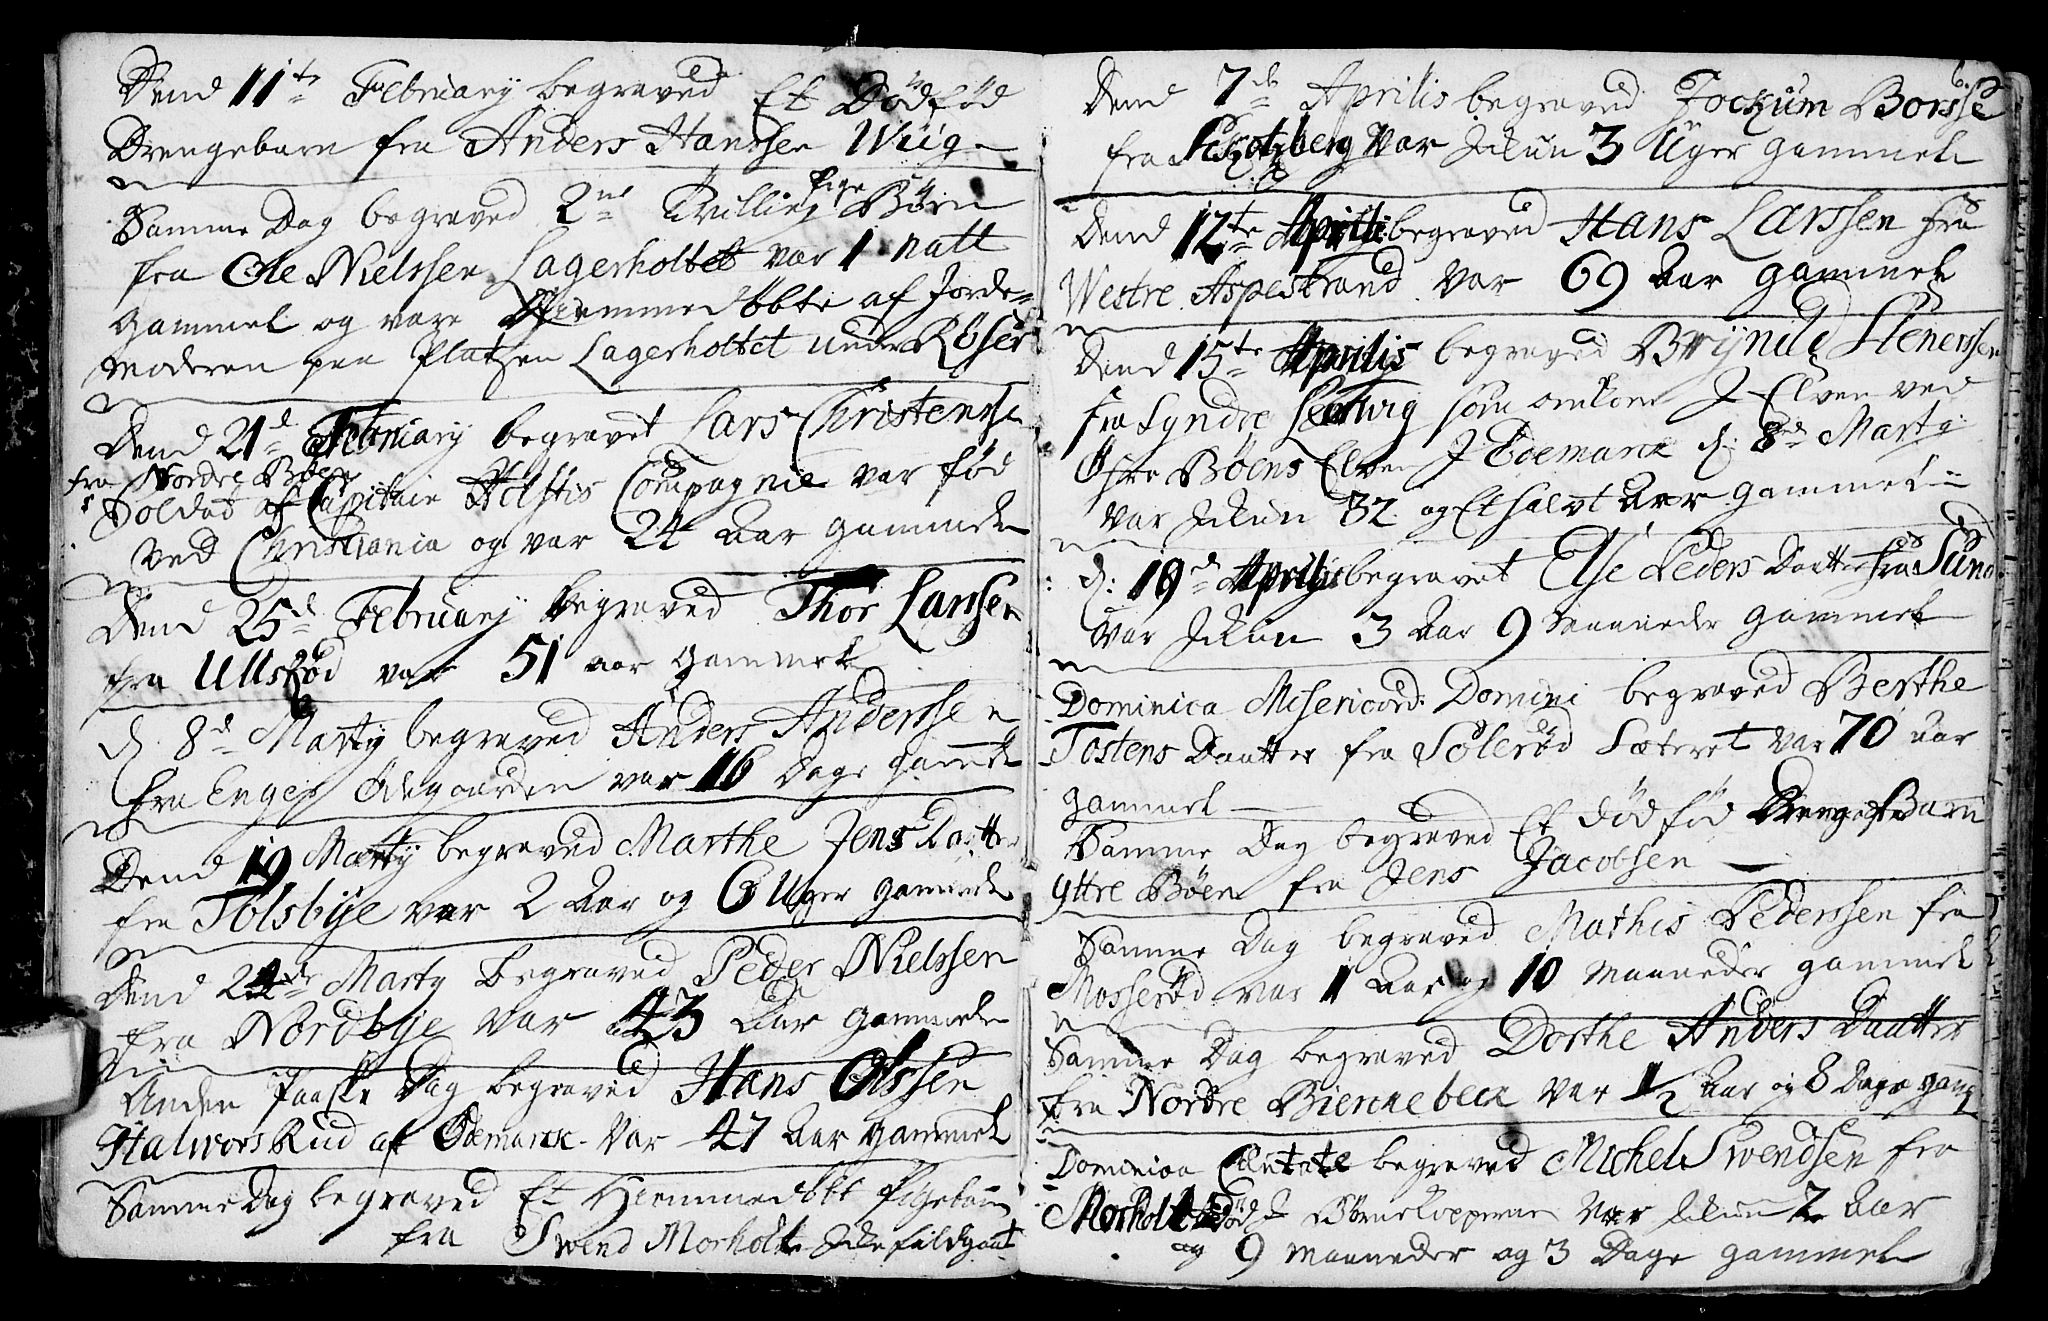 Dend 11te February begraved Et Dödföd
Drengebarn fra Anders Hanssen Wiig
Samme Dag begraved 2ne Tvilling Pige Börn
fra Ole Nielssen Lagerholtet var 1 natt
Gammel og vare Hiemmedöbte af Jorde=
moderen paa Platzen Lagerholtet under Röser
Dend 21d February begravet Lars Christenssen
fra Nordre Böen
Soldad af Capitain Holstis Compagnie var föd
ved Christiania og var 24 Aar gammel
Dend 25d February begraved Thor Larssen
fra Ullsröd var 51 aar gammel
d. 8d Marty begraved Anders Anderssen
fra Enger Ödegaarden var 16 Dage gammel
Dend 19 Marty begraved Marthe Jens Daatter
fra Tolsbye var 2 Aar og 6 Uger gammel
Dend 24de Marty Begraved Peder Nielssen
fra Nordbye var 43 Aar gammel
Anden Paaske Dag begraved Hans Olssen
Halwors Rud af Ödemarck var 47 Aar gammel
Samme Dag begraved Et Hiemmedöbt Pigebarn
fra Swend Morholt Icke fuldgaat
6.
Dend 7de Aprilis begraved Jockum Borsse
fra berg var Ickun 3 Uger gammel
Dend 12te Aprilis begraved Hans Larssen fra
Westre Aspestrand var 69 Aar gammel
Dend 15te Aprilis begraved Brynild Stenerssen
fra Syndre som omkom J Elven ved
Öfre Böens Elven J Ödemarck d: 8de Marty
var Ickun 32 og Et halvt Aar gammel
d: 19d Aprilis begravet Else Peders Daatter fra Sund
var Ickun 3 Aar 9 Maaneder gammel
Dominica Misericord: Domini begraved Berthe
Tostens Daatter fra Soleröd Sæteret var 70 Aar
gammel
Samme Dag begraved Et dödföd Drenge Barn
Yttre Böen fra Jens Jacobsen
Samme Dag begraved Mathis Pederssen fra
Mosseröd var 1 Aar og 10 Maaneder gammel
Samme Dag begraved Dorthe Anders Daatter
fra Nordre Biennebeck var 1½ Aar og 8 Dage gam̄el
Dominica Cantate begraved Michel Swendsen fra
Morholt död J Börnekopperne var Ickun 2 Aar
og 9 Maaneder og 3 Dage gammel